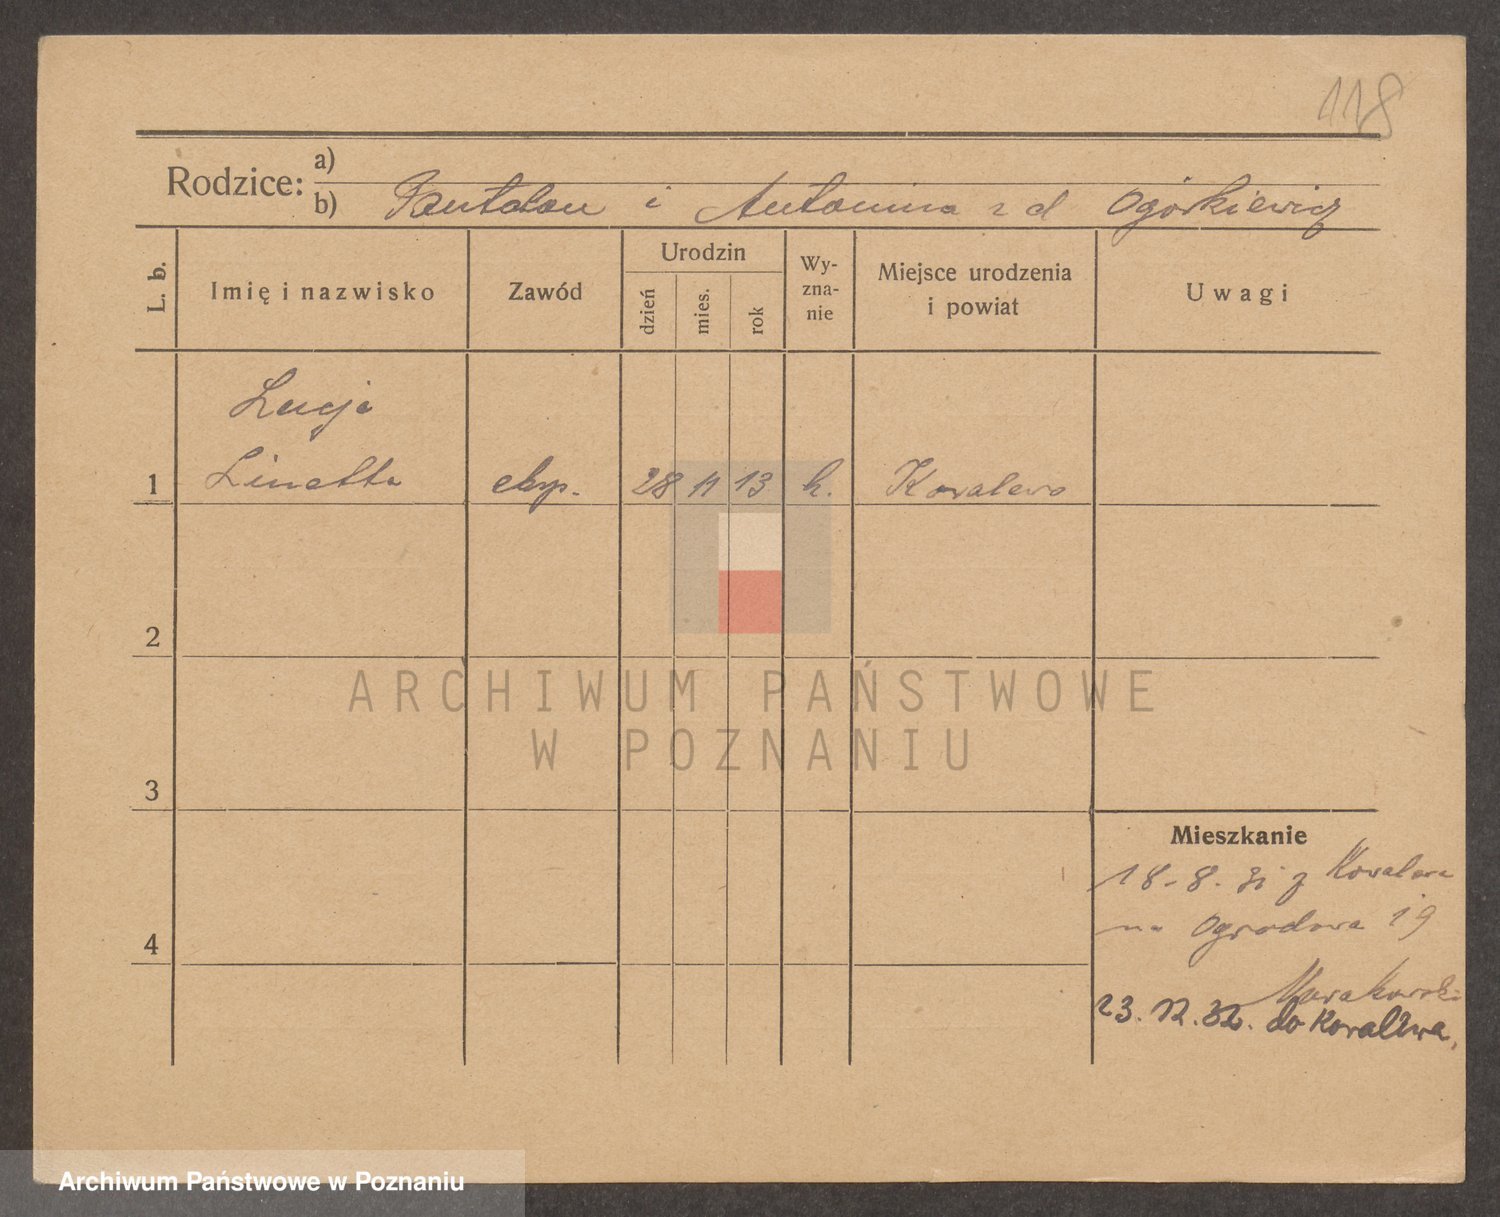 118
Rodzice:
a)
b) Pantaleon i Antonina z d Ogórkiewicz
L. b.
Imię i nazwisko
Zawód
Urodzin
dzień
mies.
rok
Wy-
zna-
nie
Miejsce urodzenia
i powiat
Uwagi
Lucja
1 Linetta eksp. 28 11 13 k. Kowalewo
2
3
4
Mieszkanie
18-8. 31 z Kowalewa
na Ogrodowa 19
23. 12. 32. do Kowalewa.
ARCHIWUM PAŃSTWOWE
W POZNANIU
Archiwum Państwowe w Poznaniu